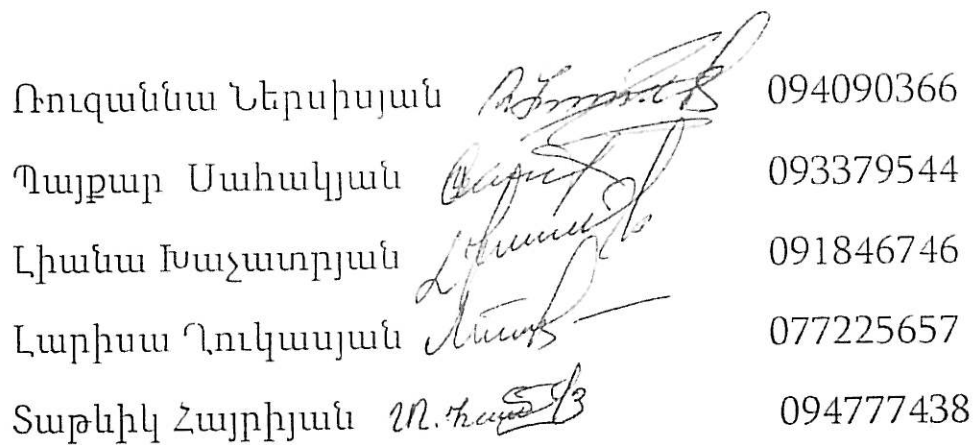 Ռուզաննա Ներսիսյան 094090366
Պայքար Սահակյան 093379544
Լիանա Խաչատրյան 091846746
Լարիսա Ղուկասյան 077225657
Տաթևիկ Հայրիյան 094777438